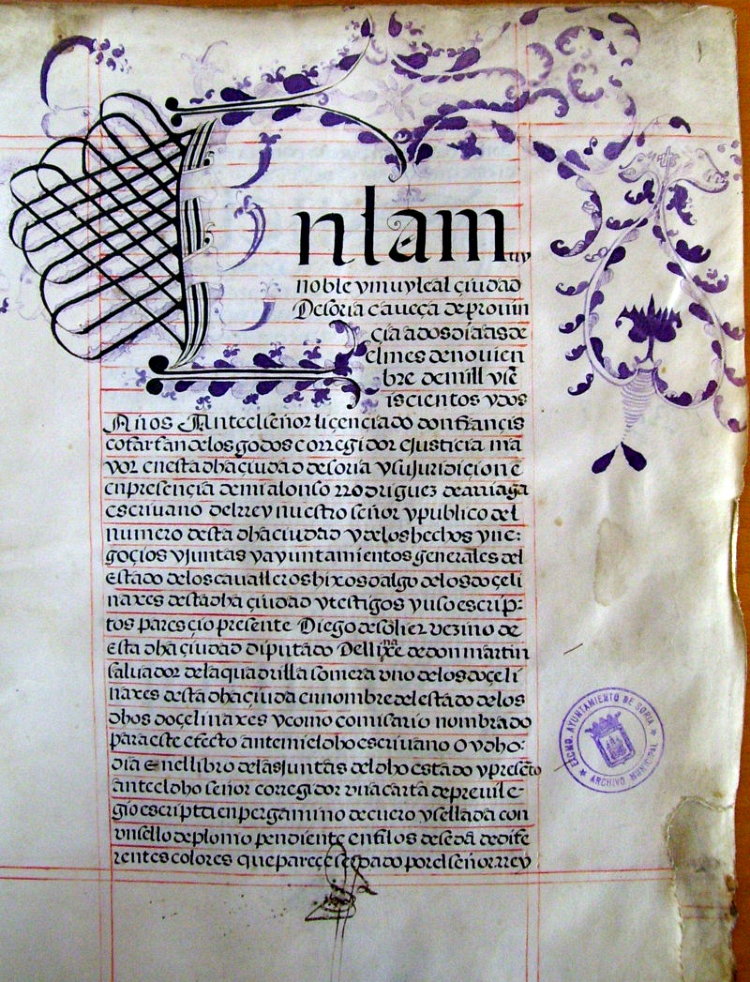 En la m uy
noble y muy leal çiudad
De soria caveça de provin
çia a dos dias de
el mes de novien
bre de mill y se
iscientos y dos
Años Ante el señor liçenciado don françis
co farfan de los godos corregidor e justicia ma
yor en esta dha ciudad de soria y su juridiçion e
en presençia de mi alonso rrodriguez de arriaga
escrivano del rrey nuestro señor y publico del
numero desta dha ciudad y de los hechos y ne
goçios y juntas y ayuntamientos generales del
estado de los cavalleros hixos dalgo de los doçe li
naxes desta dha çiudad y testigos y uso escrip
tos paresçio presente Diego de solier vezino de
esta dha ciudad diputado Del lixe na de don martin
salvador de la quadrilla somera uno de los doçe li
naxes desta dha çiuda en nombre del estado de los
dhos doçe linaxes y como comisario nombrado
para este efecto ante mi el dho escrivano Oy dho
dia En el libro de las juntas del dho estado y presento
ante el dho señor corregidor una carta de previle
gio escripta en pergamino de cuero y sellada con
un sello de plomo pendiente en filos de seda de dife
rentes colores que pareçe ser dado por el señor rrey
EXCMO. AYUNTAMIENTO DE SORIA
ARCHIVO MUNICIPAL